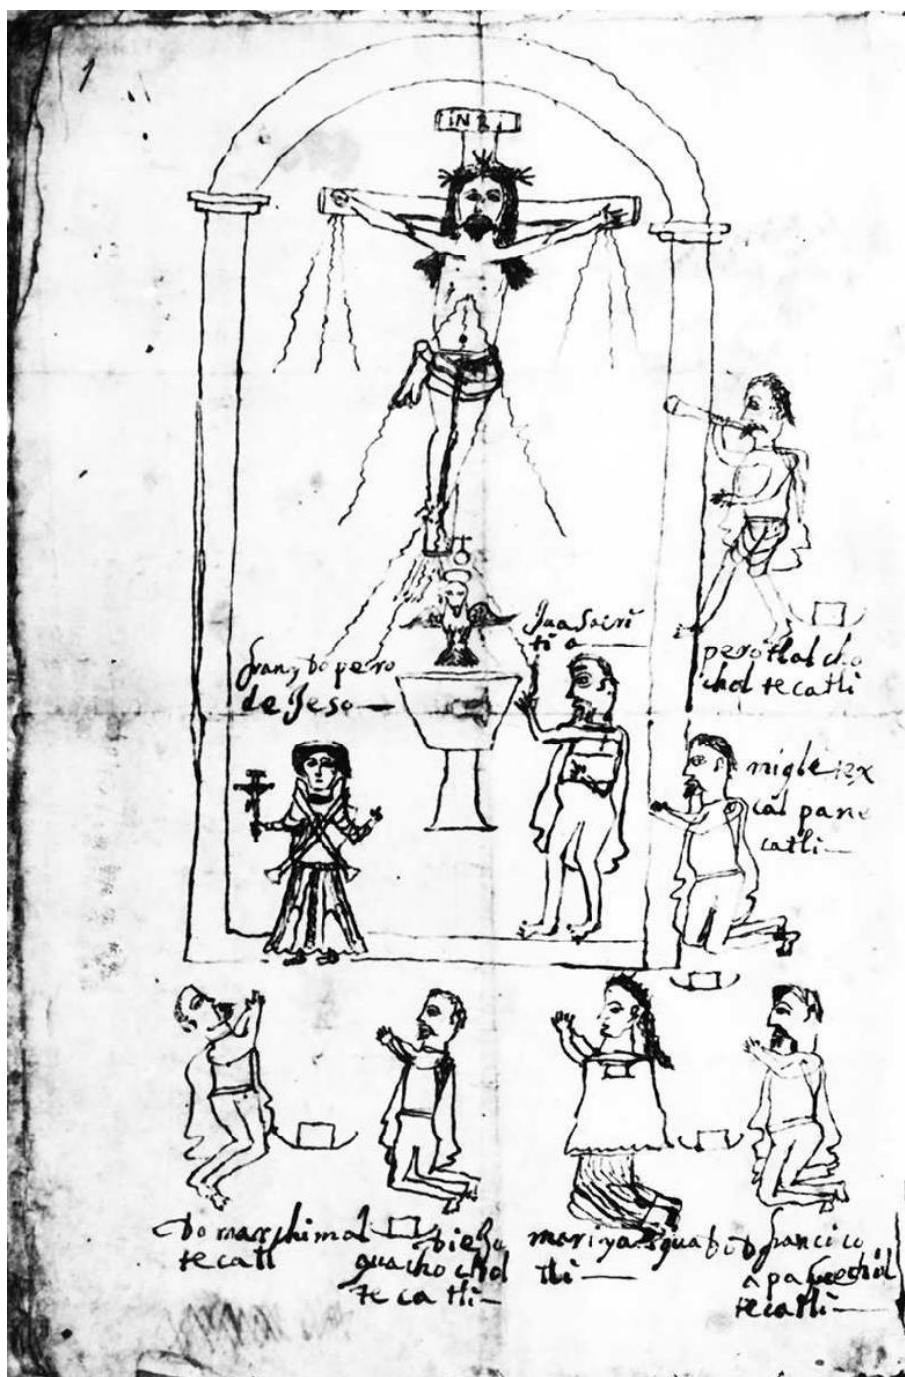 1
INRI
frany do pero
de Jeso
Jua sacri
tia
pero tlal cho
chol tecatli
migle ix
cal pane
catli
do mar chimal
tecatl
diego
quacho chol
tecatli
mariya
tli
francisco
apa
tecatli